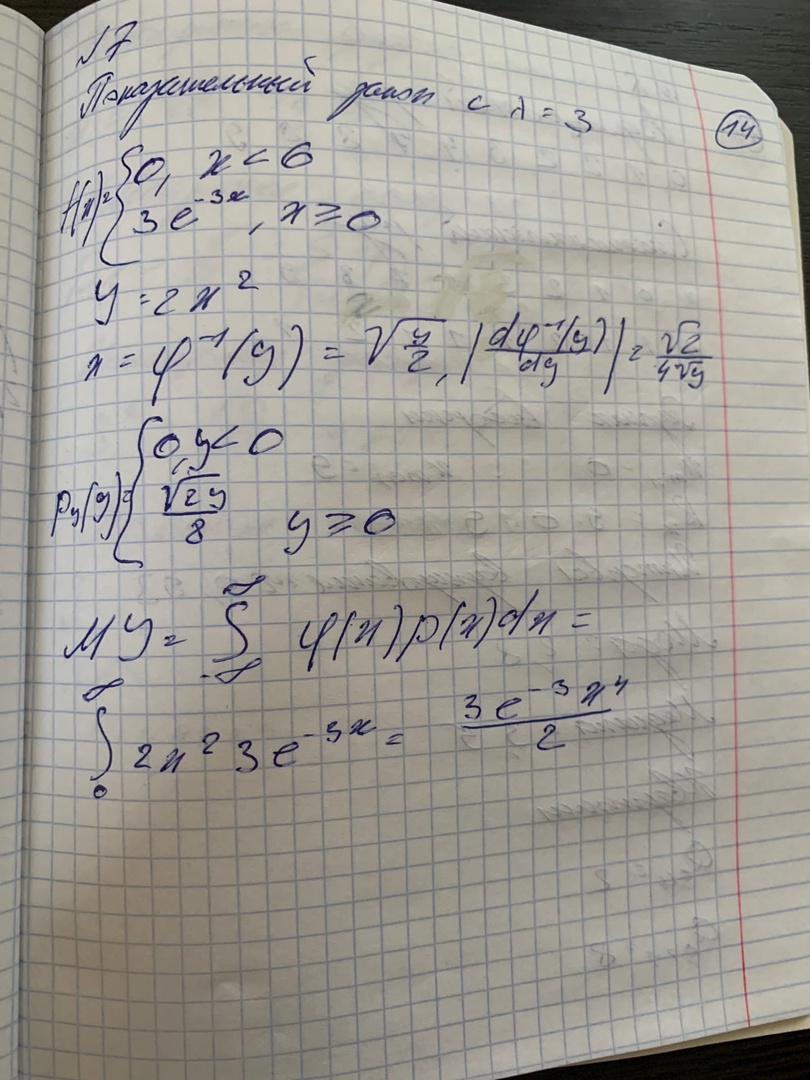 №7
Показательный закон с λ = 3
14
f(x) = { 0, x < 0
3e^{-3x}, x ≥ 0
y = 2x^2
x = φ^{-1}(y) = √(y/2), |dφ^{-1}(y)/dy| = √2/(4√y)
p_y(y) = { 0, y < 0
√(2y)/8 y ≥ 0
MY = ∫_{-∞}^{∞} φ(x)p(x)dx =
∫_0^∞ 2x^2 3e^{-3x} = (3e^{-3}x^4)/2